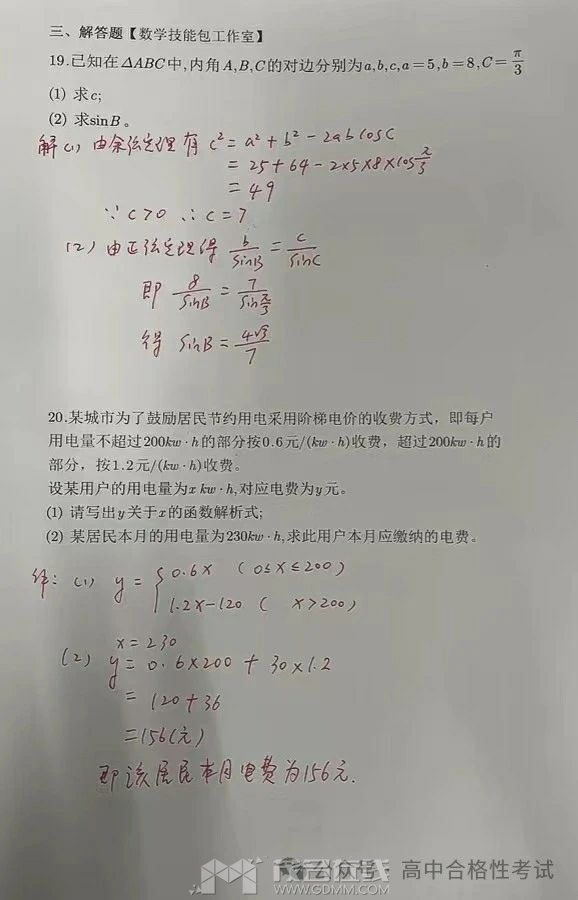 三、解答题【数学技能包工作室】
19.已知在ΔABC中,内角A,B,C的对边分别为a,b,c,a=5,b=8,C=π/3
(1) 求c;
(2) 求sinB。
解(1) 由余弦定理有 c²=a²+b²-2abcosC
=25+64-2×5×8×cosπ/3
=49
∵c>0 ∴c=7
(2) 由正弦定理得 b/sinB=c/sinC
即 8/sinB=7/sinπ/3
得 sinB=4√3/7
20.某城市为了鼓励居民节约用电采用阶梯电价的收费方式，即每户
用电量不超过200kw·h的部分按0.6元/(kw·h)收费，超过200kw·h的
部分，按1.2元/(kw·h)收费。
设某用户的用电量为x kw·h,对应电费为y元。
(1) 请写出y关于x的函数解析式;
(2) 某居民本月的用电量为230kw·h,求此用户本月应缴纳的电费。
解：(1) y={0.6x (0≤x≤200)
1.2x-120 (x>200)
x=230
(2) y=0.6×200+30×1.2
=120+36
=156(元)
即该居民本月电费为156元.
公众号 高中合格性考试
WWW.GDMM.COM